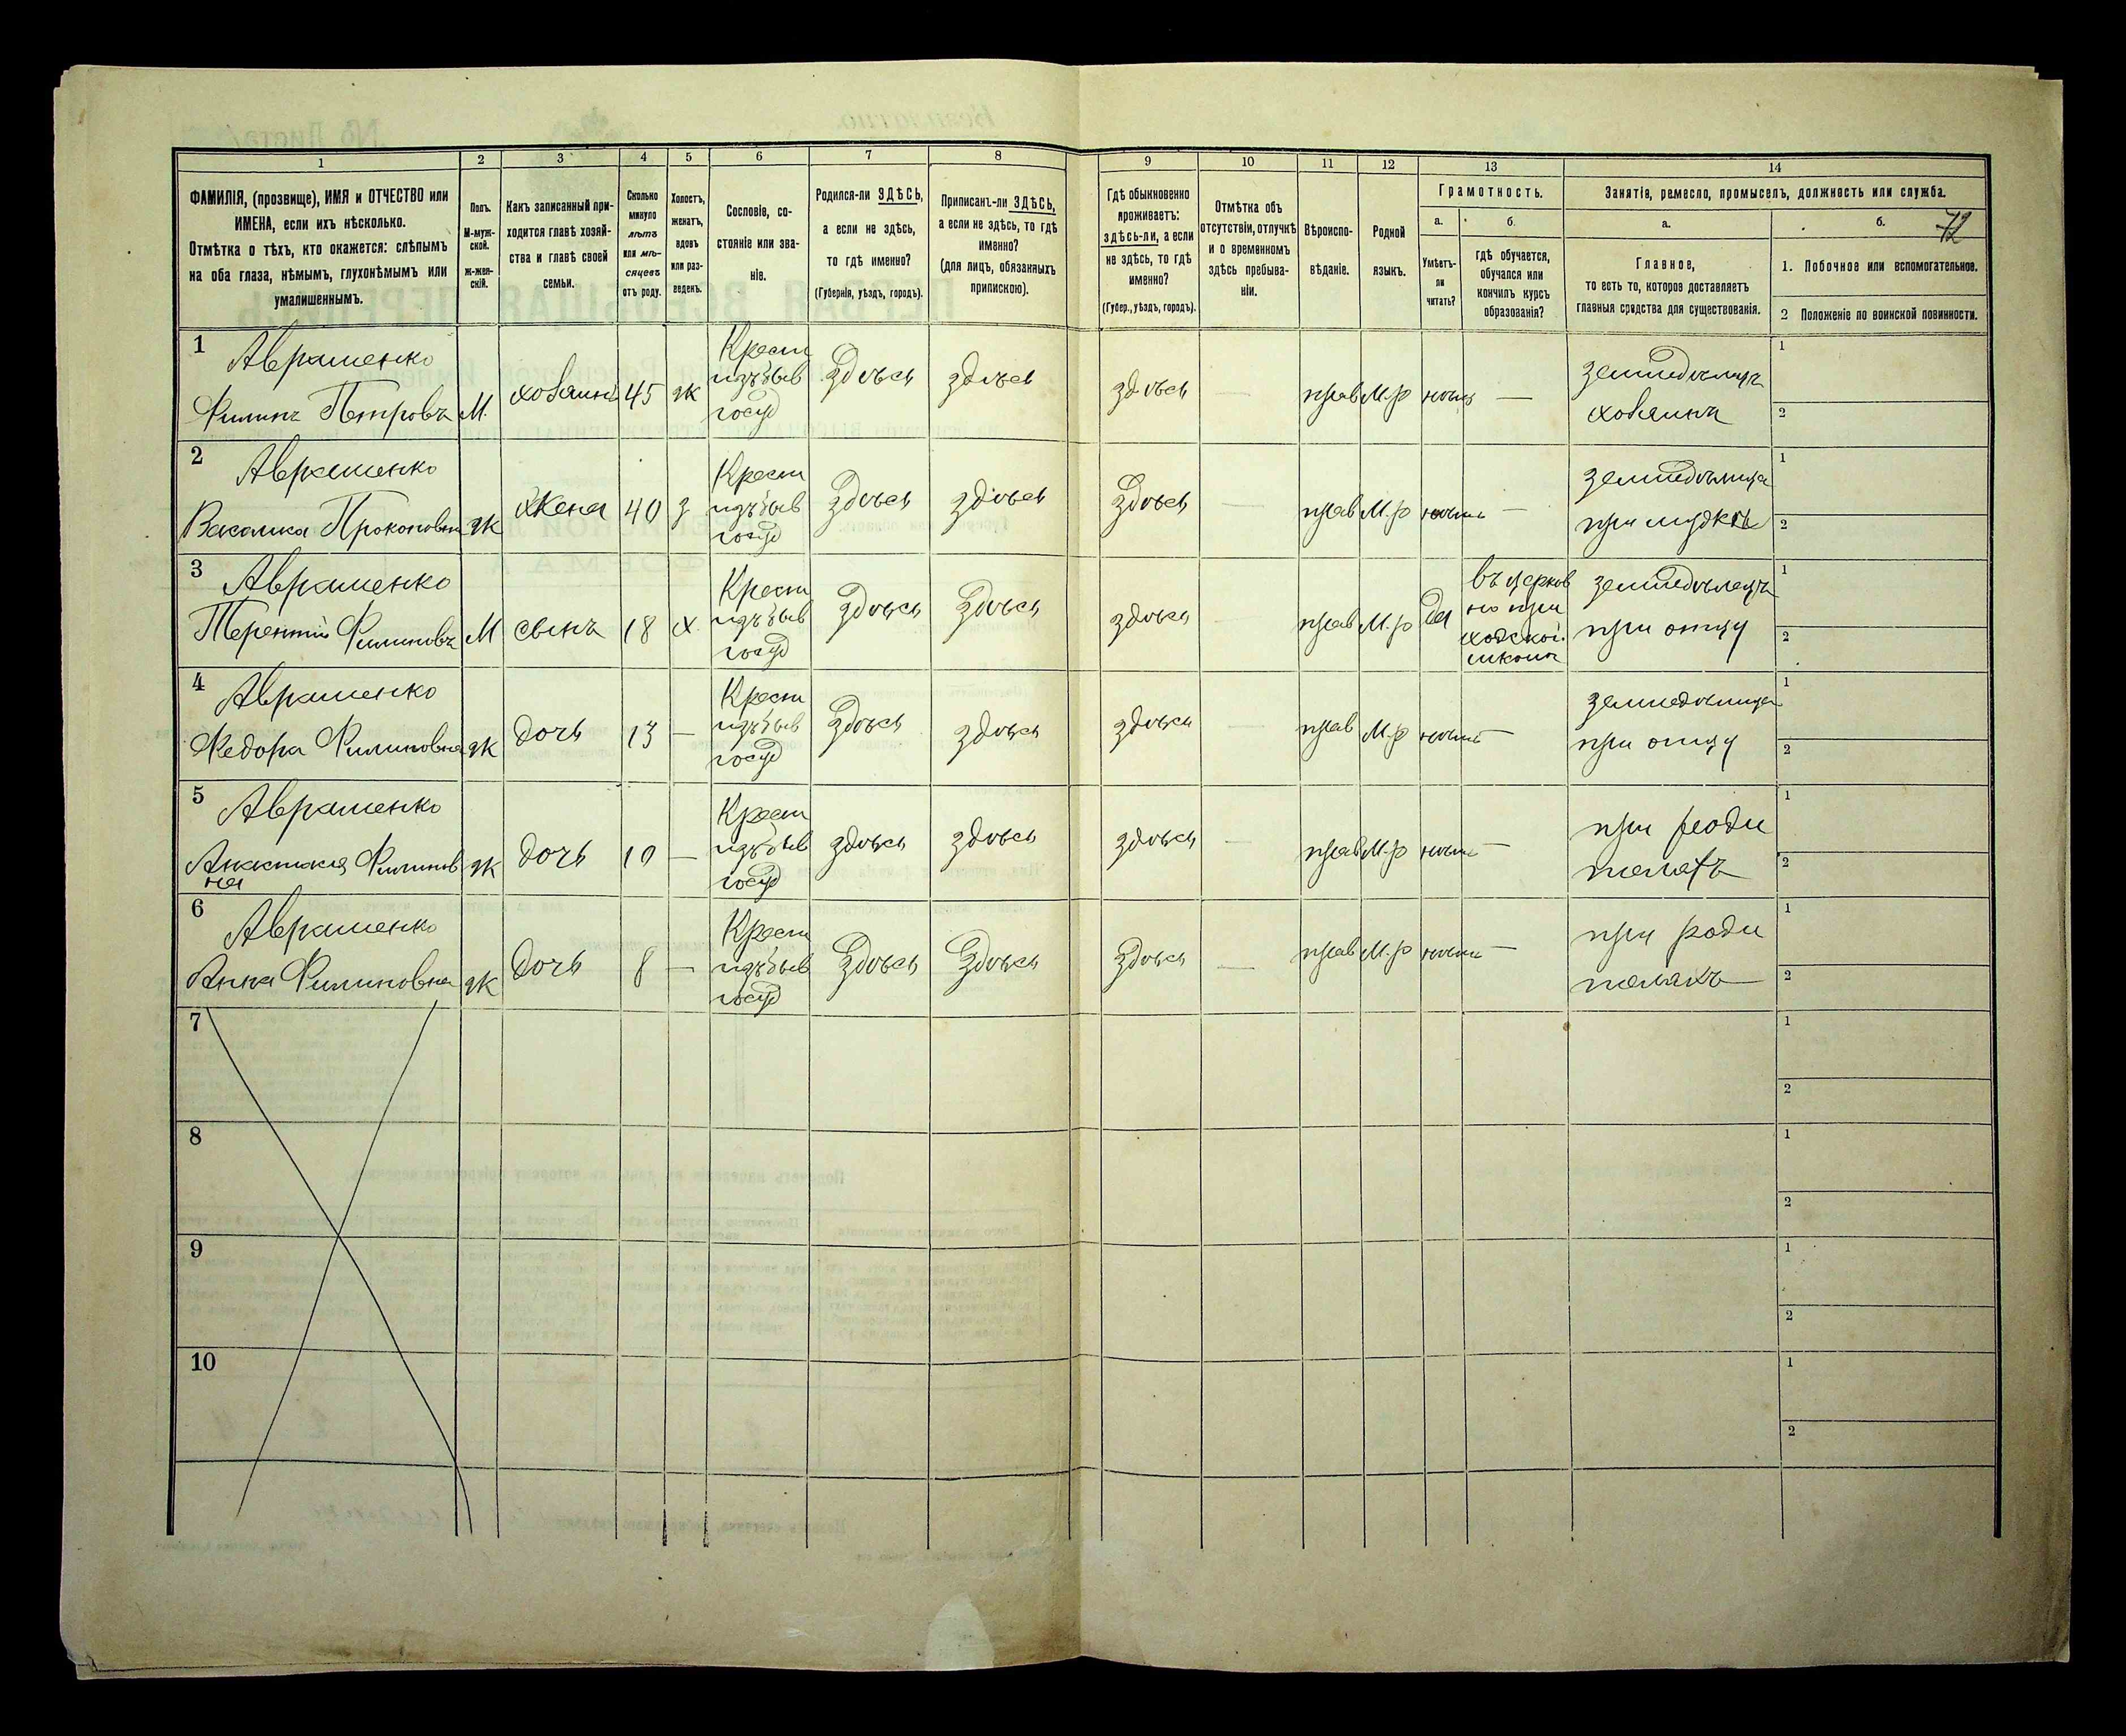 1 2 3 4 5 6 7 8 9 10 11 12 13 14
ФАМИЛІЯ, (прозвище), ИМЯ и ОТЧЕСТВО или
ИМЕНА, если ихъ нѣсколько.
Отмѣтка о тѣхъ, кто окажется: слѣпымъ
на оба глаза, нѣмымъ, глухонѣмымъ или
умалишеннымъ.
Полъ.
М-муж-
ской.
Ж-жен-
скій.
Какъ записанный при-
ходится главѣ хозяй-
ства и главѣ своей
семьи.
Сколько
минуло
лѣтъ
или мѣ-
сяцевъ
отъ роду.
Холостъ,
женатъ,
вдовъ
или раз-
веденъ.
Сословіе, со-
стояніе или зва-
ніе.
Родился-ли ЗДѢСЬ,
а если не здѣсь,
то гдѣ именно?
(Губернія, уѣздъ, городъ).
Приписанъ-ли ЗДѢСЬ,
а если не здѣсь, то гдѣ
именно?
(для лицъ, обязанныхъ
припискою).
Гдѣ обыкновенно
проживаетъ:
здѣсь-ли, а если
не здѣсь, то гдѣ
именно?
(Губер., уѣздъ, городъ).
Отмѣтка объ
отсутствіи, отлучкѣ
и о временномъ
здѣсь пребыва-
ніи.
Вѣроиспо-
вѣданіе.
Родной
языкъ.
Грамотность.
а. б.
Умѣетъ-
ли
читать?
гдѣ обучается,
обучался или
кончилъ курсъ
образованія?
Занятія, ремесло, промыселъ, должность или служба.
а. б. 72
Главное,
то есть то, которое доставляетъ
главныя средства для существованія.
1. Побочное или вспомогательное.
2 Положеніе по воинской повинности.
1 Аврашенко
Филипъ Петровъ М. хозяинъ 45 ж
Крест
изъ быв
госуд
здѣсь здѣсь здѣсь — прав М.р нѣтъ —
земледѣлецъ
хозяинъ
1
2
2 Аврашенко
Василиса Прокоповна ж жена 40 з
Крест
изъ быв
госуд
здѣсь здѣсь здѣсь — прав М.р нѣтъ —
земледѣлица
при мужѣ
1
2
3 Аврашенко
Терентій Филиповъ М сынъ 18 х
Крест
изъ быв
госуд
здѣсь здѣсь здѣсь — прав М.р да
въ церков
но при
ходской
школѣ
земледѣлецъ
при отцу
1
2
4 Аврашенко
Федора Филиповна ж дочь 13 —
Крест
изъ быв
госуд
здѣсь здѣсь здѣсь — прав М.р нѣтъ —
земледѣлица
при отцу
1
2
5 Аврашенко
Анастасія Филипов
на
ж дочь 10 —
Крест
изъ быв
госуд
здѣсь здѣсь здѣсь — прав М.р нѣтъ —
при роди
теляхъ
1
2
6 Аврашенко
Анна Филиповна ж дочь 8 —
Крест
изъ быв
госуд
здѣсь здѣсь здѣсь — прав М.р нѣтъ —
при роди
теляхъ
1
2
7
1
2
8
1
2
9
1
2
10
1
2